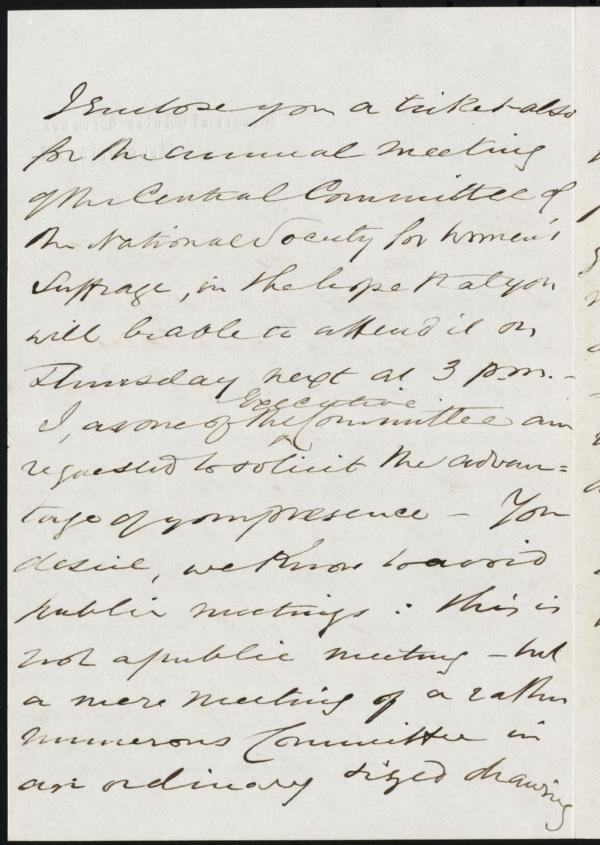 I Enclose you a ticket also
for the annual meeting
of the Central Committee of
the National Society for Women's
Suffrage, in the hope that you
will be able to attend it on
Thursday next at 3 p.m. -
I, as one of the Executive Committee am
requested to solicit the advan=
tage of your presence - You
desire, we know to avoid
public meetings : this is
not a public meeting - but
a mere meeting of a rather
numerous Committee in
an ordinary sized drawing